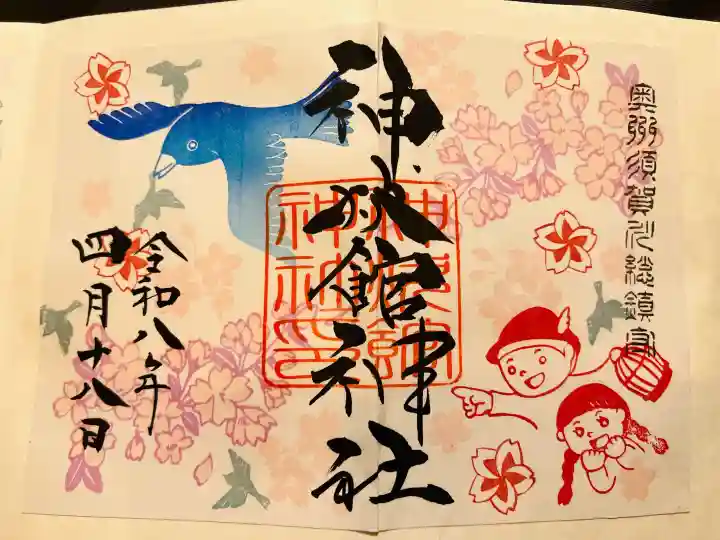 奥州須賀川総鎮守
神炊館神社
神炊館
神社印
令和八年
四月十八日